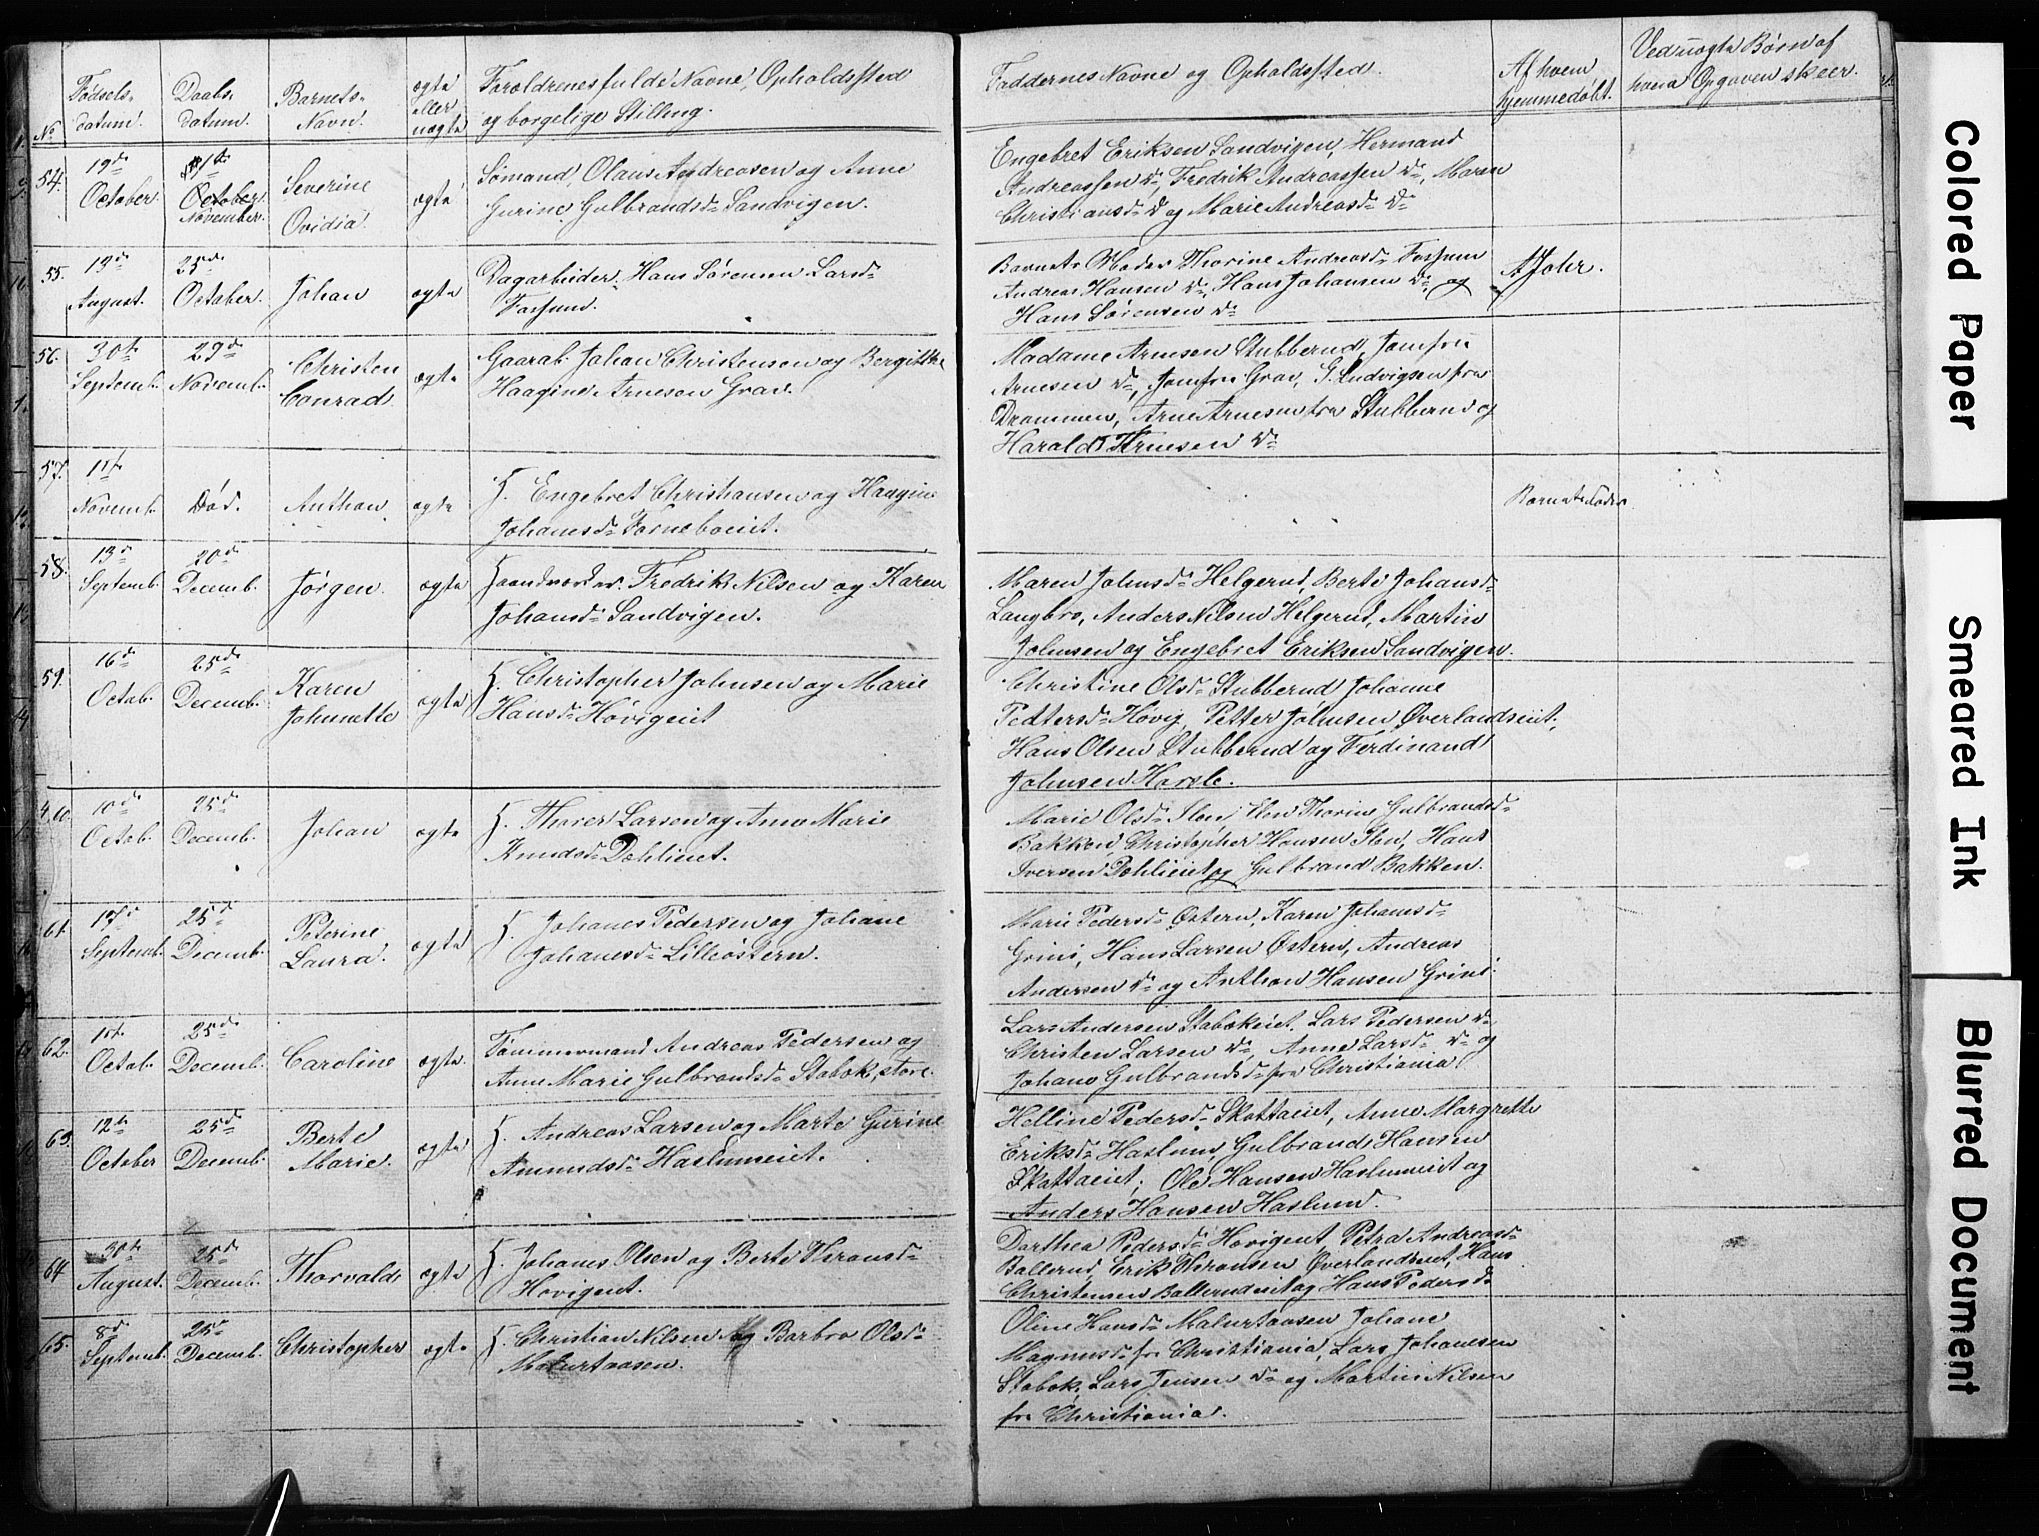 No
Fødsels-
datum.
Daabs-
datum.
Barnets-
Navn.
ægte
eller
uægte
Forældrenes fulde Navne, Opholdssted
og borgelige Stilling.
Faddernes Navne og Opholdssted.
Af hvem
hjemmedøbt.
Ved uægte Børn af
hvem Opgaven skeer.
54.
19de
October.
October.
November.
Severine
Ovidia.
ægte
Sömand, Olaus Andreasen og Anne
Gurine Gulbrandsd. Sandvigen.
Engebret Eriksen Sandvigen, Hermand
Andreassen do, Fredrik Andreassen do, Maren
Christiansd. do og Marie Andreasd. do
55.
13de
August.
25de
October.
Johan
ægte
Dagarbeider. Hans Sörensen Larsd.
Fossum.
Barnets Moder Thorine Andreasd. Fossum
Andreas Hansen do, Hans Johansen do og
Hans Sörensen do
56.
30te
Septemb.
29de
Novemb.
Christen
Conrad
ægte
Gaarab. Johan Christensen og Bergitthe
Haagine Arnesen Grav.
Madame Arnesen Stubberud, Jomfru
Arnesen do, Jomfru Grav, G. Ludvigsen fra
Drammen, Arne Arnesen fra Stubberud og
Harald Arnesen do
57.
1ste
Novemb.
Död.
Anthon
ægte
H. Engebret Christiansen og Haagine
Johanesd. Forneboeiet.
Barnets Fader
58.
13de
Septemb.
20de
Decemb.
Jørgen.
ægte
Haandværker. Fredrik Nilsen og Karen
Johansd. Sandvigen.
Maren Johnsd. Helgerud, Berte Johansd.
Langbro, Anders Nilsen Helgerud, Martin
Johnsen og Engebret Eriksen Sandvigen.
59.
16de
Octob.
25de
Decemb.
Karen
Johnette
ægte
H. Christopher Johnsen og Marie
Hansd. Hövigeiet
Christine Olsd. Stubberud Johanne
Pettersd. Hövig, Petter Johnsen Øverlandseiet,
Hans Olsen Stubberud og Ferdinand
Johnsen Harsle.
60.
10de
Octob.
25de
Decemb.
Johan
ægte
H. Thorer Larsen og Anne Marie
Knudsd. Dehlieiet.
Marie Olsd. Ilen, Elen Thorine Gulbrandsd.
Bakken, Christopher Hansen Ilen, Hans
Iversen Dehlieiet og Gulbrand Bakken.
61.
17de
Septemb.
25de
Decemb.
Peterine
Laura.
ægte
H. Johanes Pedersen og Johane
Johanesd. Lilleöstern.
Marie Pedersd. Østern, Karen Johanesd.
Grini, Hans Larsen Østern, Andreas
Andersen do og Anthon Hansen Grini.
62.
1ste
Octob.
25de
Decemb.
Caroline
ægte.
Tömmermand Andreas Pedersen og
Anne Marie Gulbrandsd. Stabæk, store.
Lars Andersen Stabækeiet. Lars Pedersen do
Christen Larsen do, Anne Larsd. do og
Johane Gulbrandsd. fra Christiania
63.
12te
October
25de
Decemb.
Berte
Marie.
ægte
H. Andreas Larsen og Marte Gurine
Amundsd. Haslumeiet.
Helline Pedersd. Skottaeiet, Anne Margrette
Eriksd. Haslum, Gulbrand Hansen
Skattaeiet, Ole Hansen Haslumeiet og
Anders Hansen Haslum.
64
30te
August.
25de
Decemb.
Thorvald
ægte
H. Johanes Olsen og Berte Theronsd.
Hövigeiet.
Dorthea Pedersd. Hövigeiet Petra Andreasd.
Ballerud, Erik Theronsen Øverlandseiet, Hans
Christensen Ballerudeiet og Hans Peders do
65.
8de
Septemb.
25de
Decemb.
Christopher
ægte
H. Christian Nilsen og Barbro Olsd.
Maurtuasen.
Oline Hansd. Maurtuasen Johane
Magnusd. fra Christiania, Lars Johanesen
Stabæk, Lars Jensen do og Martin Nilsen
fra Christiania.
Colored Paper
Smeared Ink
Blurred Document